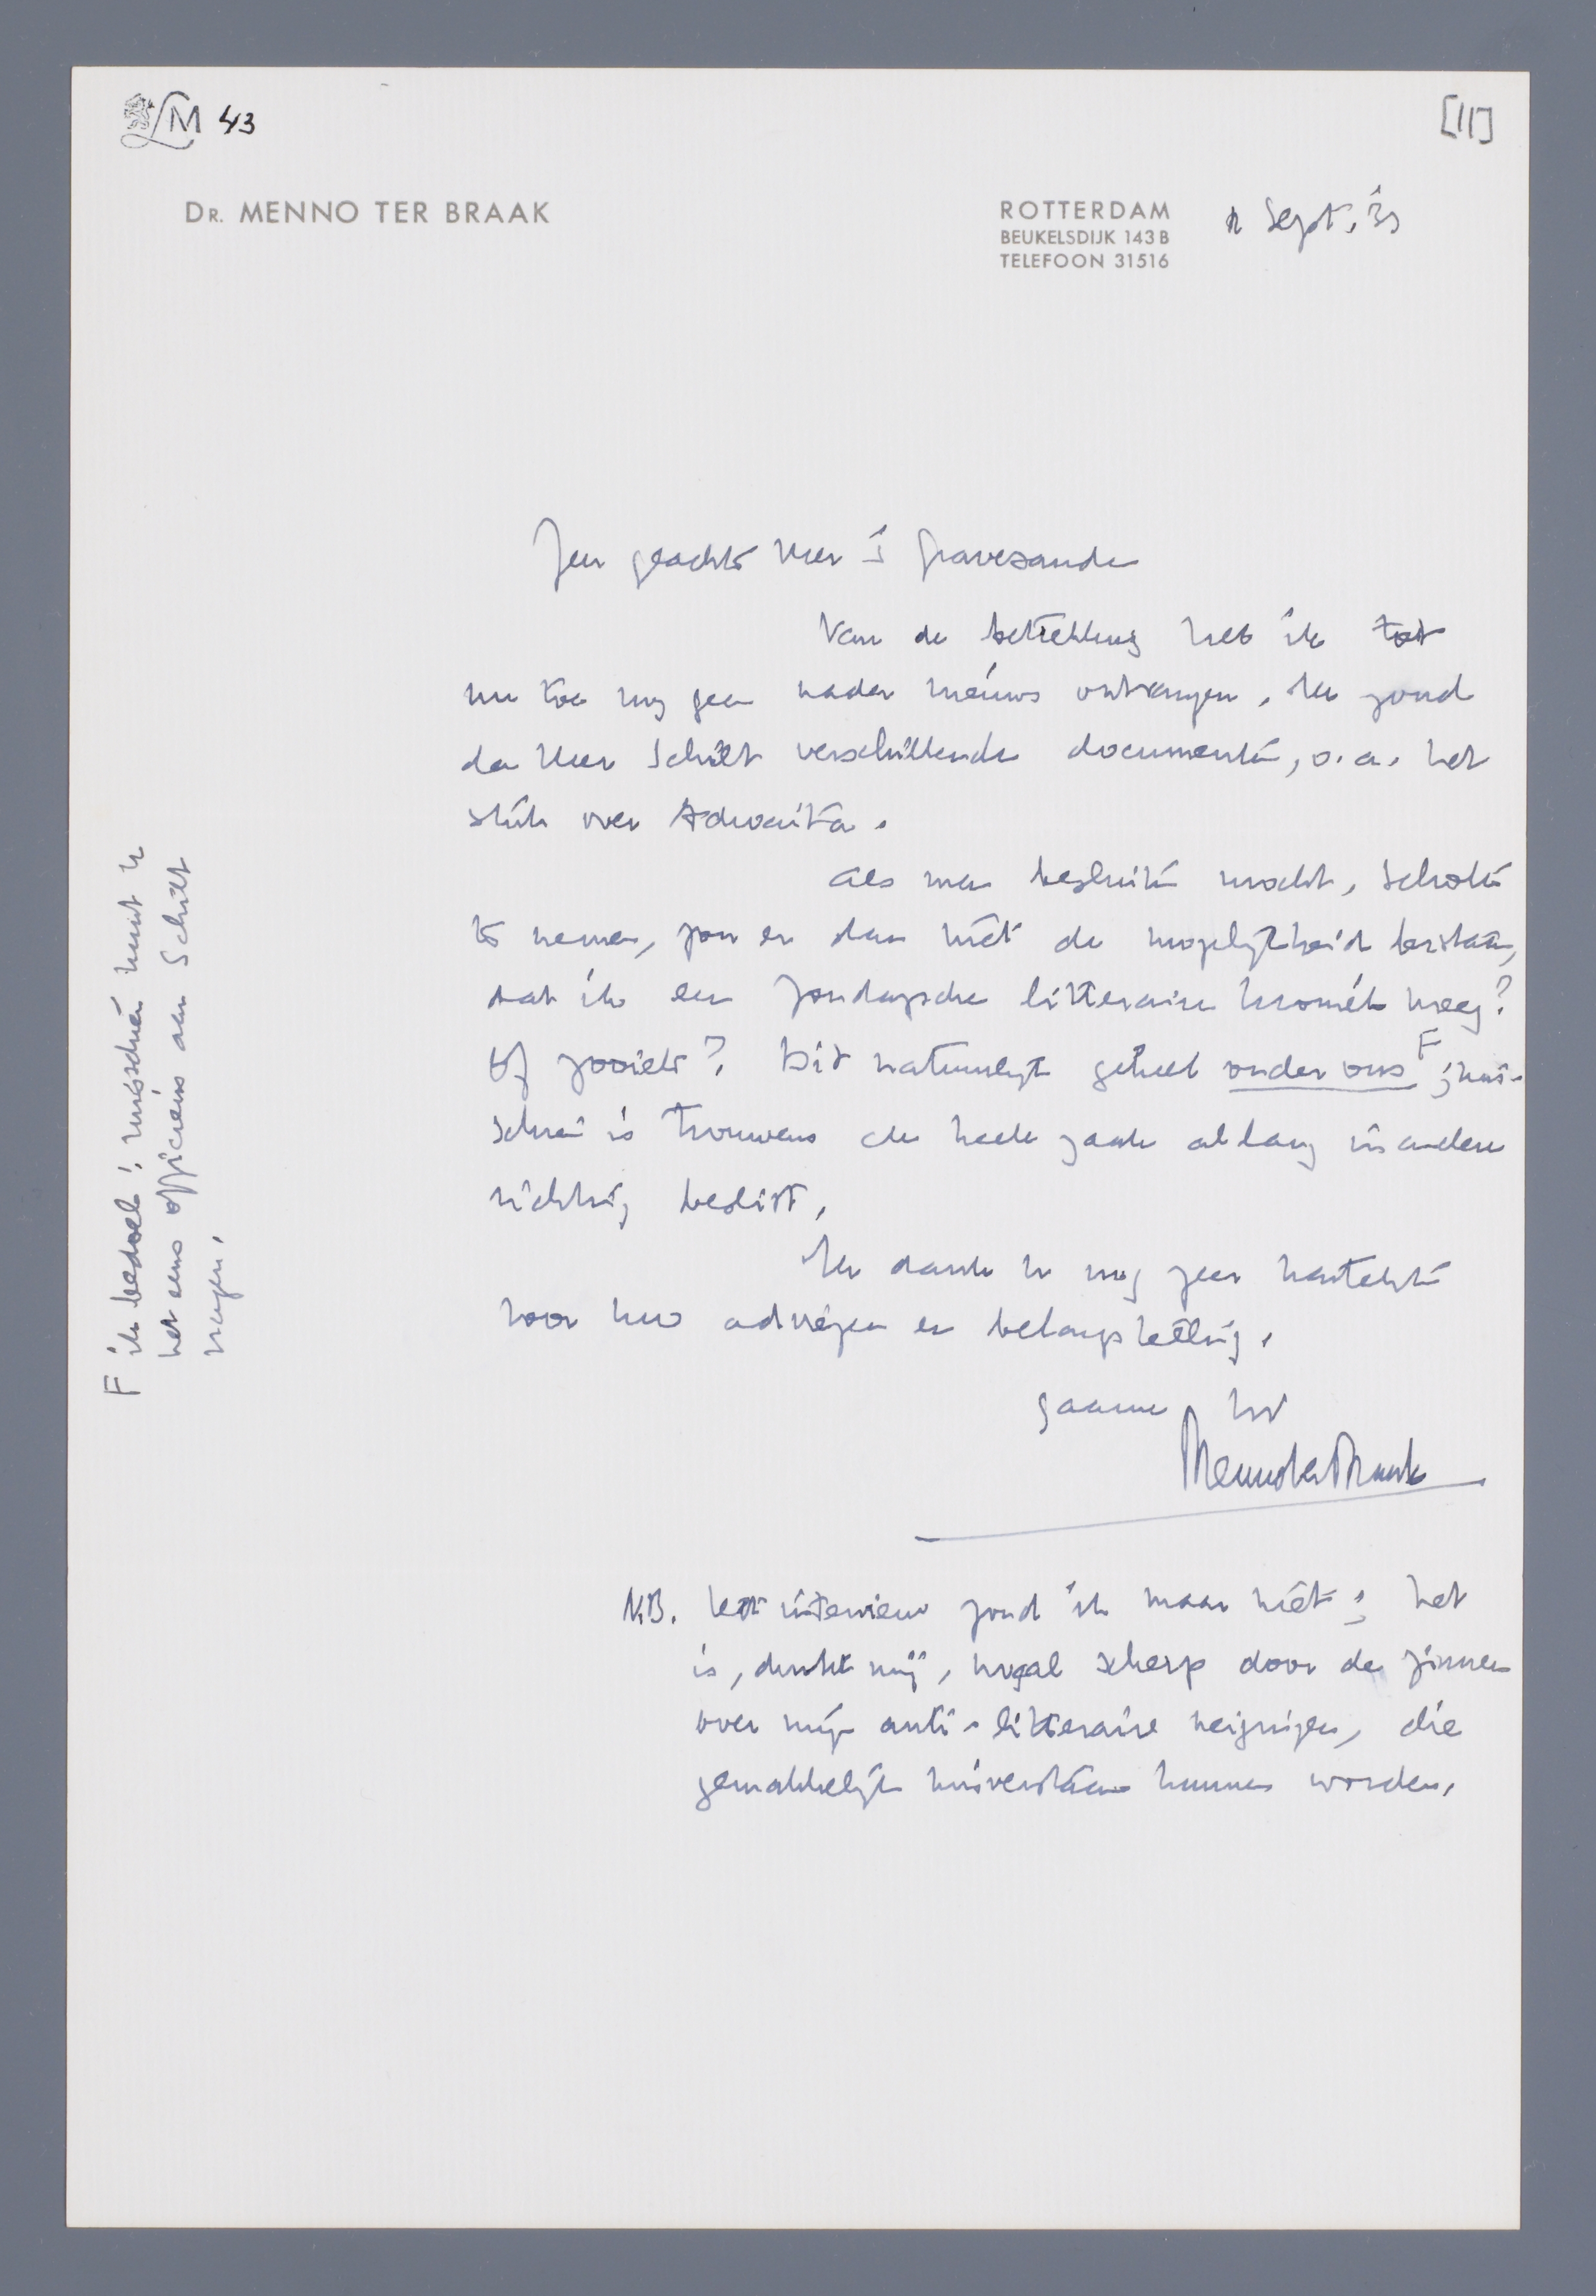 LM 43
[11]
DR. MENNO TER BRAAK
ROTTERDAM
BEUKELSDIJK 143 B
TELEFOON 31516
Sept. '33
Zeer geachte Heer 's Gravesande
Van de betrekking heb ik tot
nu toe nog geen nader nieuws ontvangen. Ik zond
den Heer Schilt verschillende documenten, o.a. het
stuk over Adwaita.
Als men besluiten mocht, Scholte
te nemen, zou er dan niet de mogelijkheid bestaan,
dat ik een Zondagsche litteraire kroniek kreeg?
Of zooiets? Dit natuurlijk geheel onder ons F; mis-
schien is trouwens de heele zaak al lang in andere
richting beslist.
Ik dank U nog zeer hartelijk
voor Uw adviezen en belangstelling.
Gaarne Uw
Menno ter Braak
N.B. Het interview zond ik maar niet; het
is, dunkt mij, nogal scherp door de zinnen
over mijn anti-litteraire neigingen, die
gemakkelijk misverstaan kunnen worden.
F ik bedoel: misschien kunt U
het eens officieus aan Schilt
vragen.